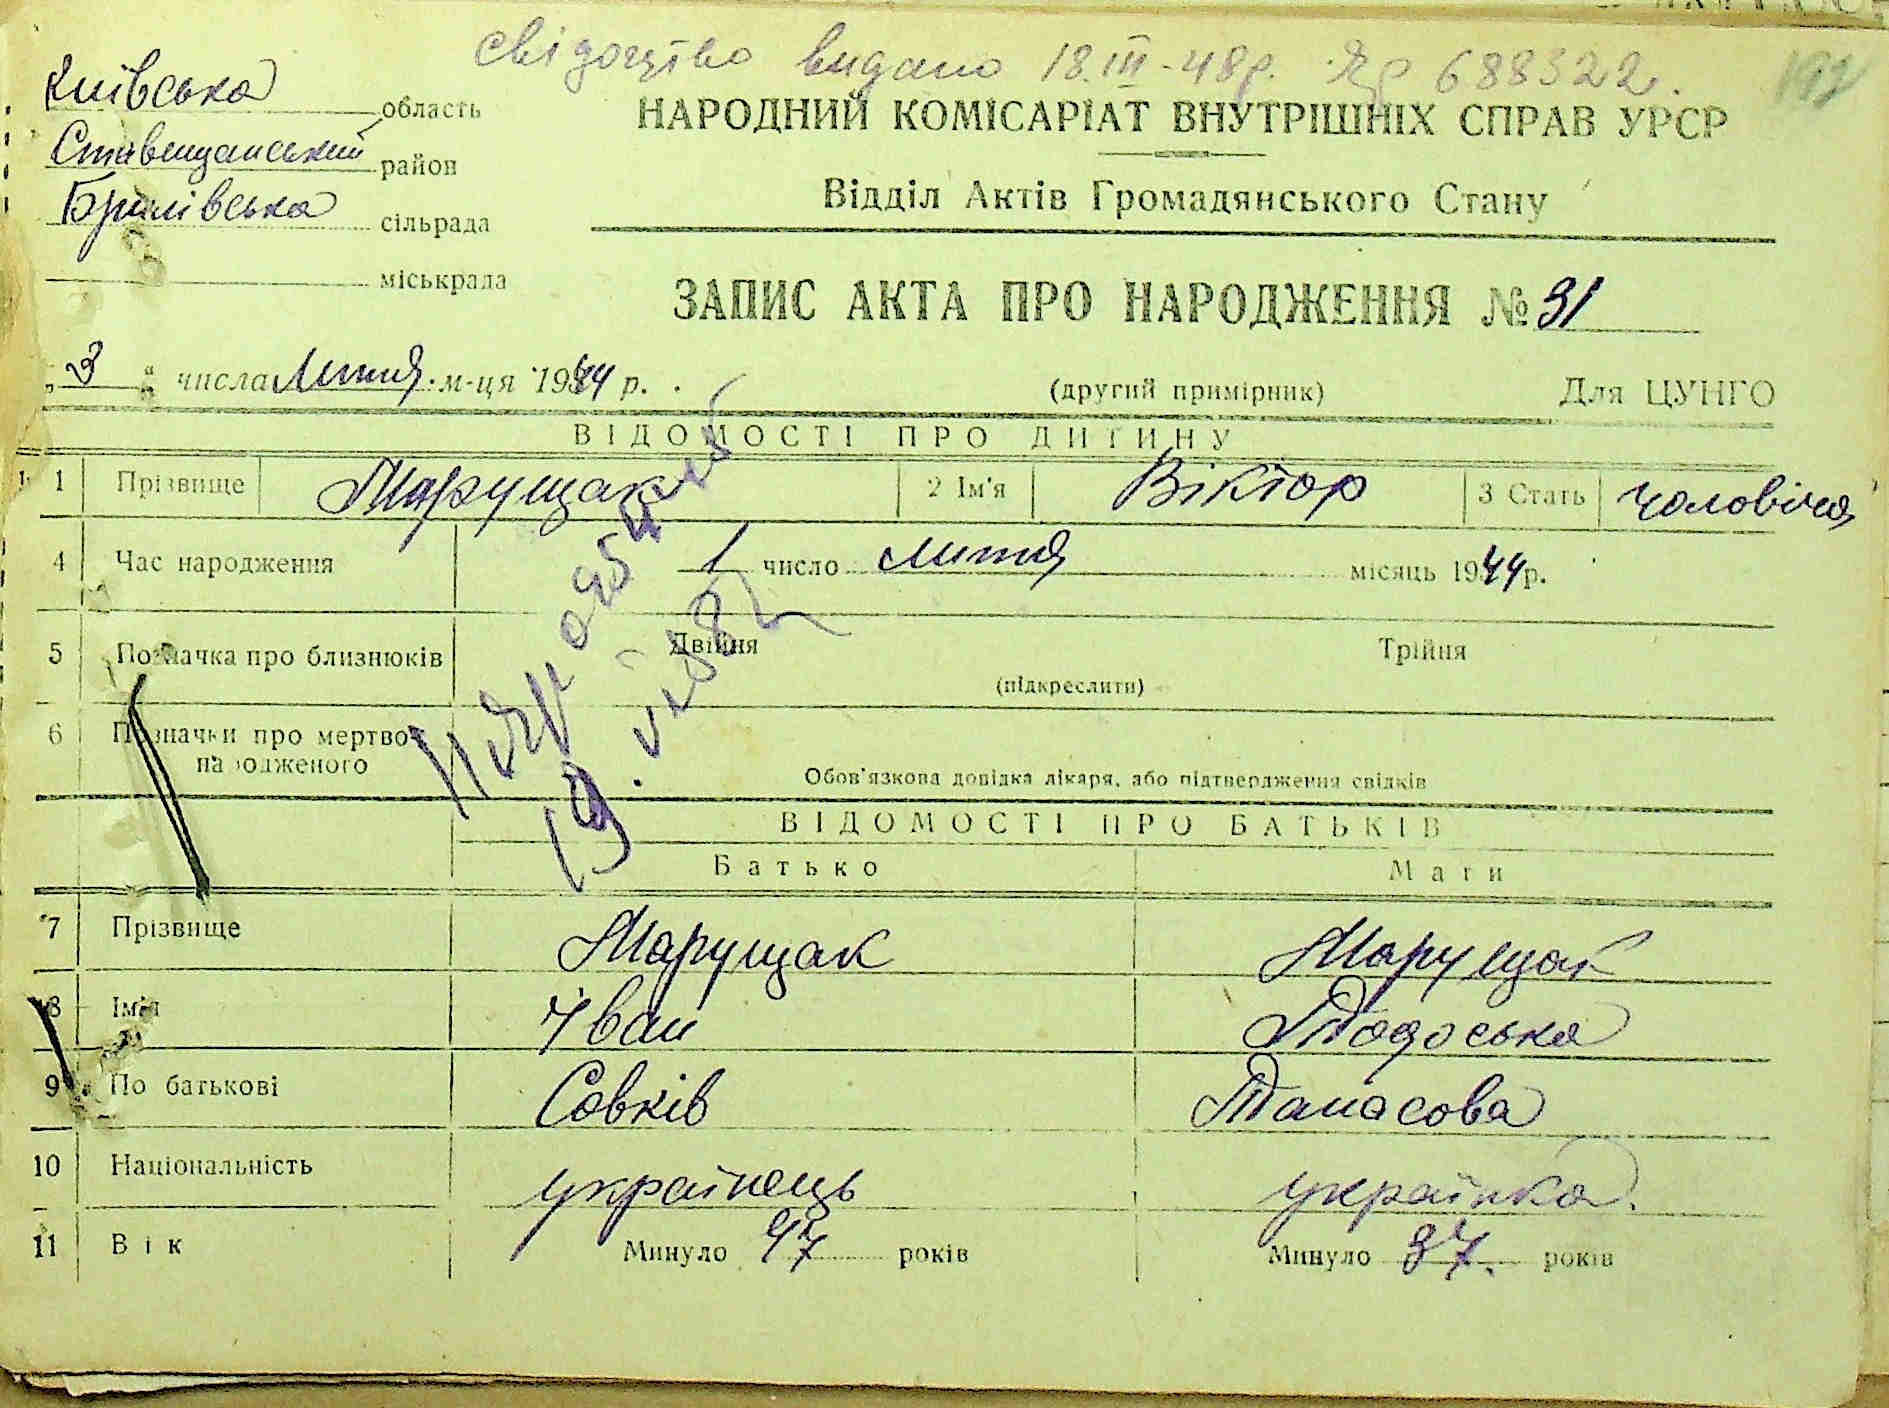 свідоцтво видано 18.III-48р. 688322.
192
Київська область
Ставищанський район
Брилівська сільрада
міськрада
НАРОДНИЙ КОМІСАРІАТ ВНУТРІШНІХ СПРАВ УРСР
Відділ Актів Громадянського Стану
ЗАПИС АКТА ПРО НАРОДЖЕННЯ № 31
„ 3 “ числа Лютня м-ця 1944 р.
(другий примірник) Для ЦУНГО
ВІДОМОСТІ ПРО ДИТИНУ
1 Прізвище Марущак 2 Ім'я Віктор 3 Стать чоловіча
4 Час народження 1 число лютня місяць 1944 р.
5 Позначка про близнюків Двійня Трійня
(підкреслити)
6 Позначки про мертвонародженого
Обов'язкова довідка лікаря, або підтвердження свідків
ВІДОМОСТІ ПРО БАТЬКІВ
Батько Мати
7 Прізвище Марущак Марущак
8 Ім'я Іван Тодоська
9 По батькові Совків Танасова
10 Національність українець українка.
11 Вік Минуло 47 років Минуло 37. років